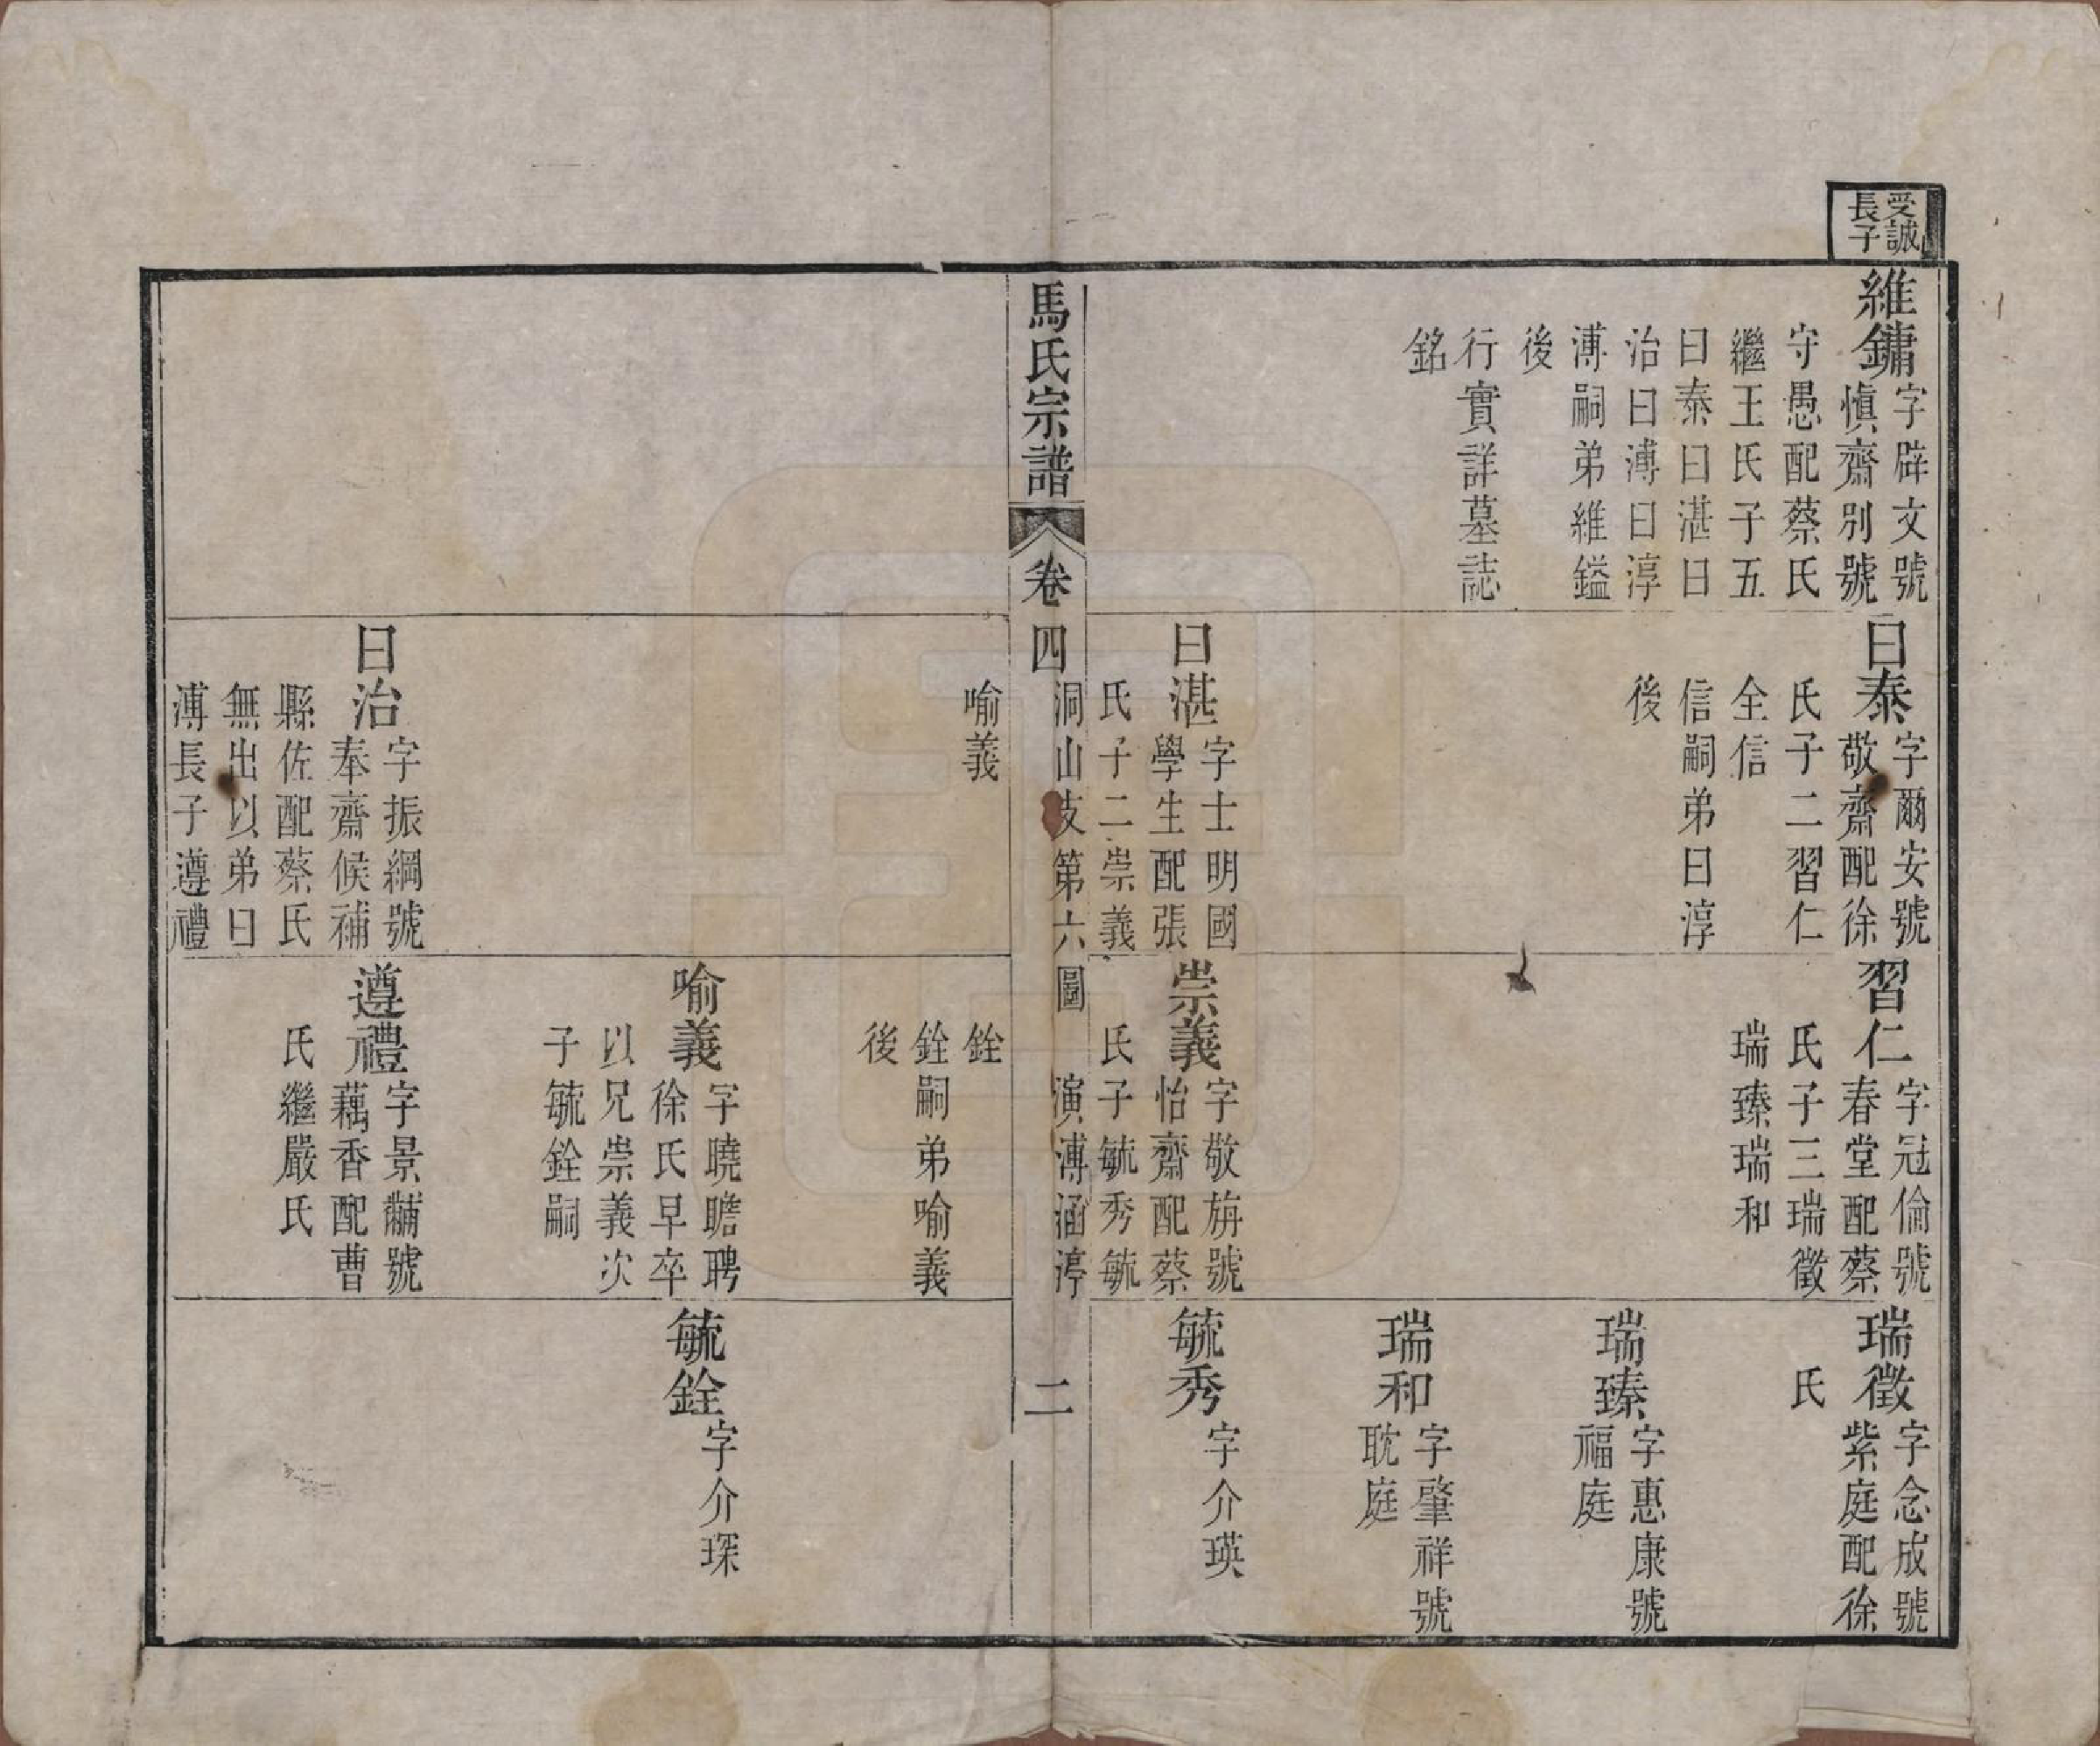 受誠
長子
維鏞
字辟文號
慎齋別號
守愚配蔡氏
繼王氏子五
曰泰曰湛曰
治曰溥曰淳
溥嗣弟維鎰
後
行實詳墓誌
銘
曰泰
字爾安號
敬齋配徐
氏子二習仁
全信
信嗣弟曰淳
後
習仁
字冠倫號
春堂配蔡
氏子三瑞徵
瑞臻瑞和
瑞徵
字念成號
紫庭配徐
氏
瑞臻
字惠康號
福庭
瑞和
字肇祥號
耽庭
曰湛
字士明國
學生配張
氏子二崇義
崇義
字敬旃號
怡齋配蔡
氏子毓秀毓
毓秀
字介瑛
馬氏宗譜
卷四
洞山支第六圖
演溥涵渟
二
喻義
銓
銓嗣弟喻義
後
喻義
字曉瞻聘
徐氏早卒
以兄崇義次
子毓銓嗣
毓銓
字介琛
曰治
字振綱號
奉齋候補
縣佐配蔡氏
無出以弟曰
溥長子遵禮
遵禮
字景黼號
藕香配曹
氏繼嚴氏